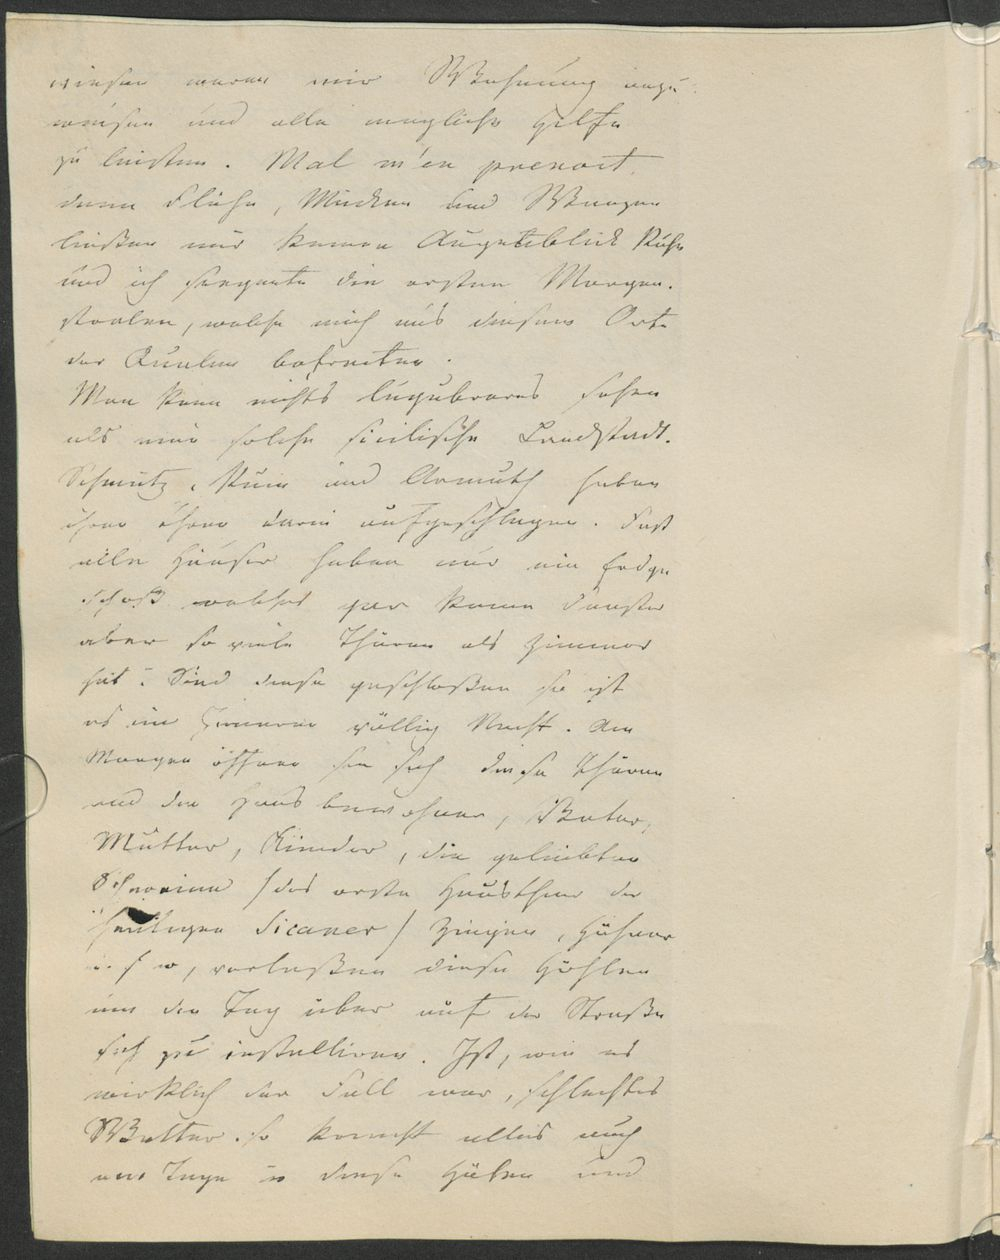 wiesen waren mir Wohnung anzu
weisen und alle mögliche Hilfe
zu leisten. Mal m'en prenoit,
denn Flöhe, Mücken und Wanzen
ließen mir keinen Augenblick Ruhe
und ich segnete die ersten Morgen-
stralen, welche mich aus diesem Orte
der Qualen befreiten.
Man kann nichts lugubreres sehen
als eine solche sicilische Landstadt.
Schmutz, Ruin und Armuth haben
ihren Thron darin aufgeschlagen. Fast
alle Häuser haben nur ein Erdge
schoß welches gar keine Fenster
aber so viele Thüren als Zimmer
hat. Sind diese geschloßen so ist
es im Inneren völlig Nacht. Am
Morgen öffnen sich diese Thüren
und die Hausbewohner, Vater,
Mutter, Kinder, die geliebten
Schweine (das erste Hausthier der
heutigen Sicaner) Ziegen, Hühner
u. s w, verlaßen diese Höhlen
um den Tag über auf der Straße
sich zu installiren. Ist, wie es
wirklich der Fall war, schlechtes
Wetter so kriecht alles auch
am Tage in diese Höhlen und